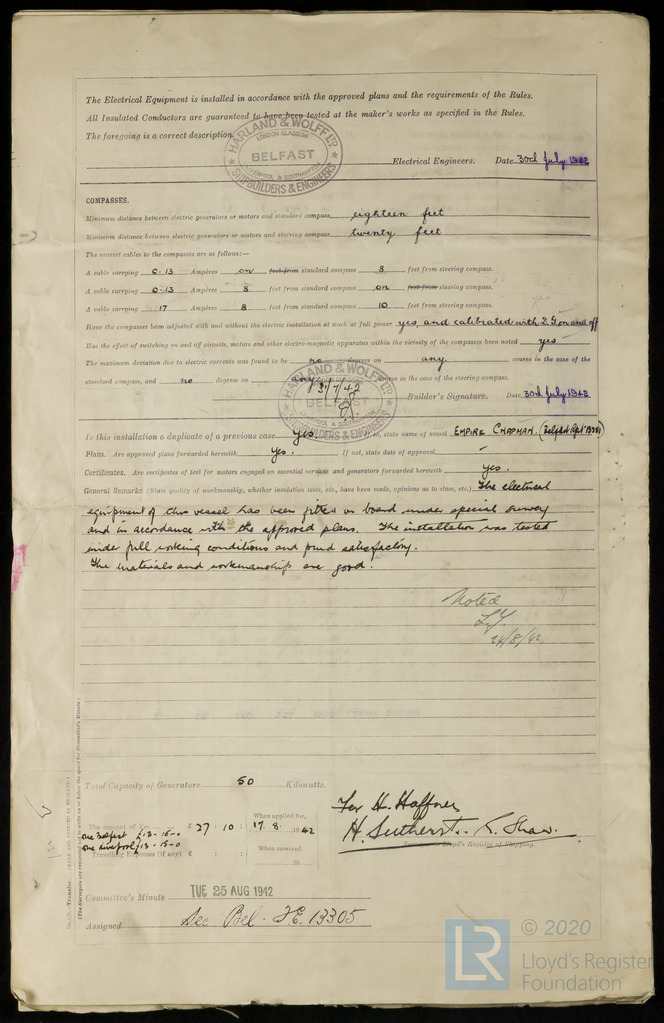 The Electrical Equipment is installed in accordance with the approved plans and the requirements of the Rules.
All Insulated Conductors are guaranteed to have been tested at the maker's works as specified in the Rules.
The foregoing is a correct description.
HARLAND & WOLFF LTD
LONDON GLASGOW
BELFAST
LIVERPOOL & SOUTHAMPTON
SHIPBUILDERS & ENGINEERS
Electrical Engineers. Date 30th July 1942
COMPASSES.
Minimum distance between electric generators or motors and standard compass eighteen feet
Minimum distance between electric generators or motors and steering compass twenty feet
The nearest cables to the compasses are as follows:—
A cable carrying 0·13 Ampères on feet from standard compass 8 feet from steering compass.
A cable carrying 0·13 Ampères 8 feet from standard compass on feet from steering compass.
A cable carrying 17 Ampères 8 feet from standard compass 10 feet from steering compass.
Have the compasses been adjusted with and without the electric installation at work at full power yes, and calibrated with D.G. on and off
Has the effect of switching on and off circuits, motors and other electro-magnetic apparatus within the vicinity of the compasses been noted yes
The maximum deviation due to electric currents was found to be no degrees on any course in the case of the
standard compass, and no degrees on any course in the case of the steering compass.
HARLAND & WOLFF LTD
BELFAST
LIVERPOOL & SOUTHAMPTON
SHIPBUILDERS & ENGINEERS
31/7/42
Builder's Signature. Date 30th July 1942
Is this installation a duplicate of a previous case Yes. If so, state name of vessel EMPIRE CHAPMAN.
Plans. Are approved plans forwarded herewith Yes. If not, state date of approval
Certificates. Are certificates of test for motors engaged on essential services and generators forwarded herewith Yes.
General Remarks (State quality of workmanship, whether insulation tests, etc., have been made, opinions as to class, etc.) The electrical
equipment of this vessel has been fitted on board under special survey
and in accordance with the approved plans. The installation was tested
under full working conditions and found satisfactory.
The materials and workmanship are good.
Noted
24/8/42
Total Capacity of Generators 50 Kilowatts.
The amount of Fee £ 27 : 10 : When applied for, 17. 8. 1942
one Belfast £13-15-0
one Liverpool £13-15-0
Travelling Expenses (if any) £ : : When received, 19
For H. Haffner
H. Sutherst. Shaw.
Surveyor to Lloyd's Register of Shipping.
Committee's Minute TUE 25 AUG 1942
Assigned See Bel. F.E. 13305
(The Surveyors are requested not to write on or below the space for Committee's Minute.)
Transfer.
LR
© 2020
Lloyd's Register
Foundation